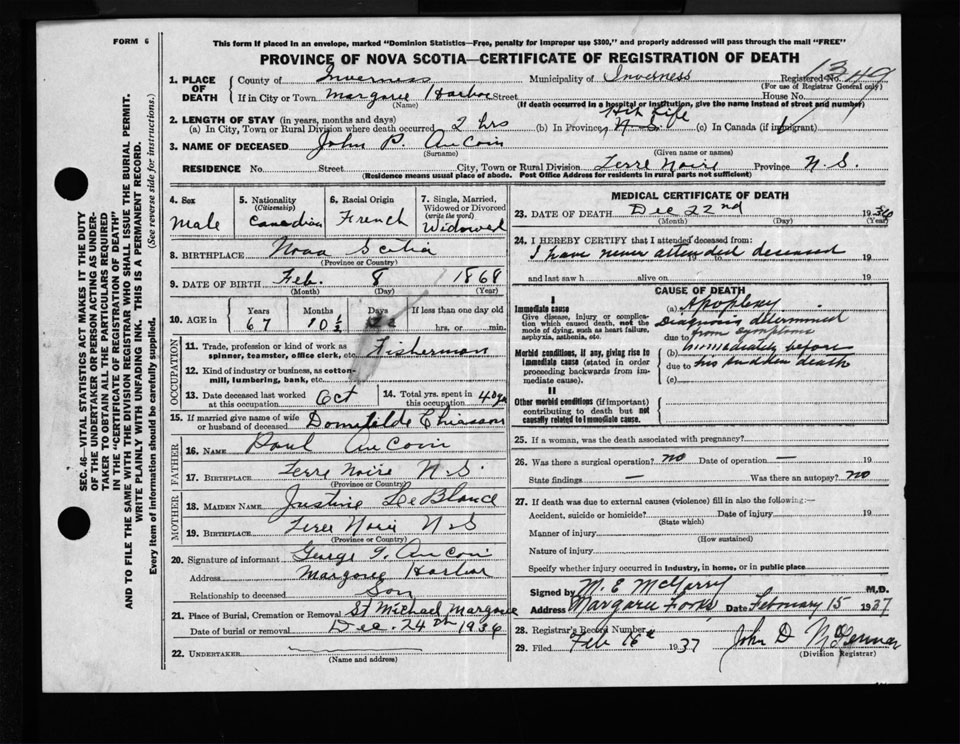 FORM 6
This form if placed in an envelope, marked "Dominion Statistics—Free, penalty for improper use $300," and properly addressed will pass through the mail "FREE"
PROVINCE OF NOVA SCOTIA—CERTIFICATE OF REGISTRATION OF DEATH
1. PLACE OF DEATH County of Inverness Municipality of Inverness Registered No. 1349
(For use of Registrar General only)
If in City or Town Margaree Harbor Street House No.
(Name) (If death occurred in a hospital or institution, give the name instead of street and number)
2. LENGTH OF STAY (in years, months and days) His Life
(a) In City, Town or Rural Division where death occurred 2 hrs (b) In Province N.S. (c) In Canada (if immigrant)
3. NAME OF DECEASED John P. AuCoin
(Surname) (Given name or names)
RESIDENCE No. Street City, Town or Rural Division Terre Noire Province N.S.
(Residence means usual place of abode. Post Office Address for residents in rural parts not sufficient)
4. Sex Male
5. Nationality (Citizenship) Canadian
6. Racial Origin French
7. Single, Married, Widowed or Divorced (write the word) Widowed
8. BIRTHPLACE Nova Scotia
(Province or Country)
9. DATE OF BIRTH Feb. 8 1868
(Month) (Day) (Year)
10. AGE in Years Months Days If less than one day old
67 10 ½ hrs, or min.
OCCUPATION
11. Trade, profession or kind of work as spinner, teamster, office clerk, etc. Fisherman
12. Kind of industry or business, as cotton-mill, lumbering, bank, etc.
13. Date deceased last worked at this occupation Oct
14. Total yrs. spent in this occupation 40 yrs
15. If married give name of wife or husband of deceased Domitilde Chiasson
FATHER
16. NAME Paul AuCoin
17. BIRTHPLACE Terre Noire N.S.
(Province or Country)
MOTHER
18. MAIDEN NAME Justine LeBlance
19. BIRTHPLACE Terre Noire N.S
(Province or Country)
20. Signature of informant George T. AuCoin
Address Margaree Harbor
Relationship to deceased Son
21. Place of Burial, Cremation or Removal St Michael Margaree
Date of burial or removal Dec. 24th 1936
22. UNDERTAKER
(Name and address)
MEDICAL CERTIFICATE OF DEATH
23. DATE OF DEATH Dec 22nd 1936
(Month) (Day)
24. I HEREBY CERTIFY that I attended deceased from:
I have never attended deceased 19
and last saw h alive on 19
CAUSE OF DEATH
I
Immediate cause
Give disease, injury or complication which caused death, not the mode of dying, such as heart failure, asphyxia, asthenia, etc.
(a) Apoplexy
Diagnosis determined
due to from symptoms
Morbid conditions, if any, giving rise to immediate cause (stated in order proceeding backwards from immediate cause).
(b) immediately before
due to his sudden death
(c)
II
Other morbid conditions (if important) contributing to death but not causally related to immediate cause.
25. If a woman, was the death associated with pregnancy?
26. Was there a surgical operation? no Date of operation —
State findings — Was there an autopsy? no
27. If death was due to external causes (violence) fill in also the following:—
Accident, suicide or homicide? Date of injury 19
(State which)
Manner of injury
(How sustained)
Nature of injury
Specify whether injury occurred in industry, in home, or in public place
Signed by M. E. McGarry M.D.
Address Margaree Forks Date February 15 1937
28. Registrar's Record Number
29. Filed Feb 16th 1937 John D
(Division Registrar)
SEC. 46—VITAL STATISTICS ACT MAKES IT THE DUTY
OF THE UNDERTAKER OR PERSON ACTING AS UNDER-
TAKER TO OBTAIN ALL THE PARTICULARS REQUIRED
IN THE "CERTIFICATE OF REGISTRATION OF DEATH"
AND TO FILE THE SAME WITH THE DIVISION REGISTRAR WHO SHALL ISSUE THE BURIAL PERMIT.
WRITE PLAINLY WITH UNFADING INK. THIS IS A PERMANENT RECORD.
Every item of information should be carefully supplied. (See reverse side for instructions.)